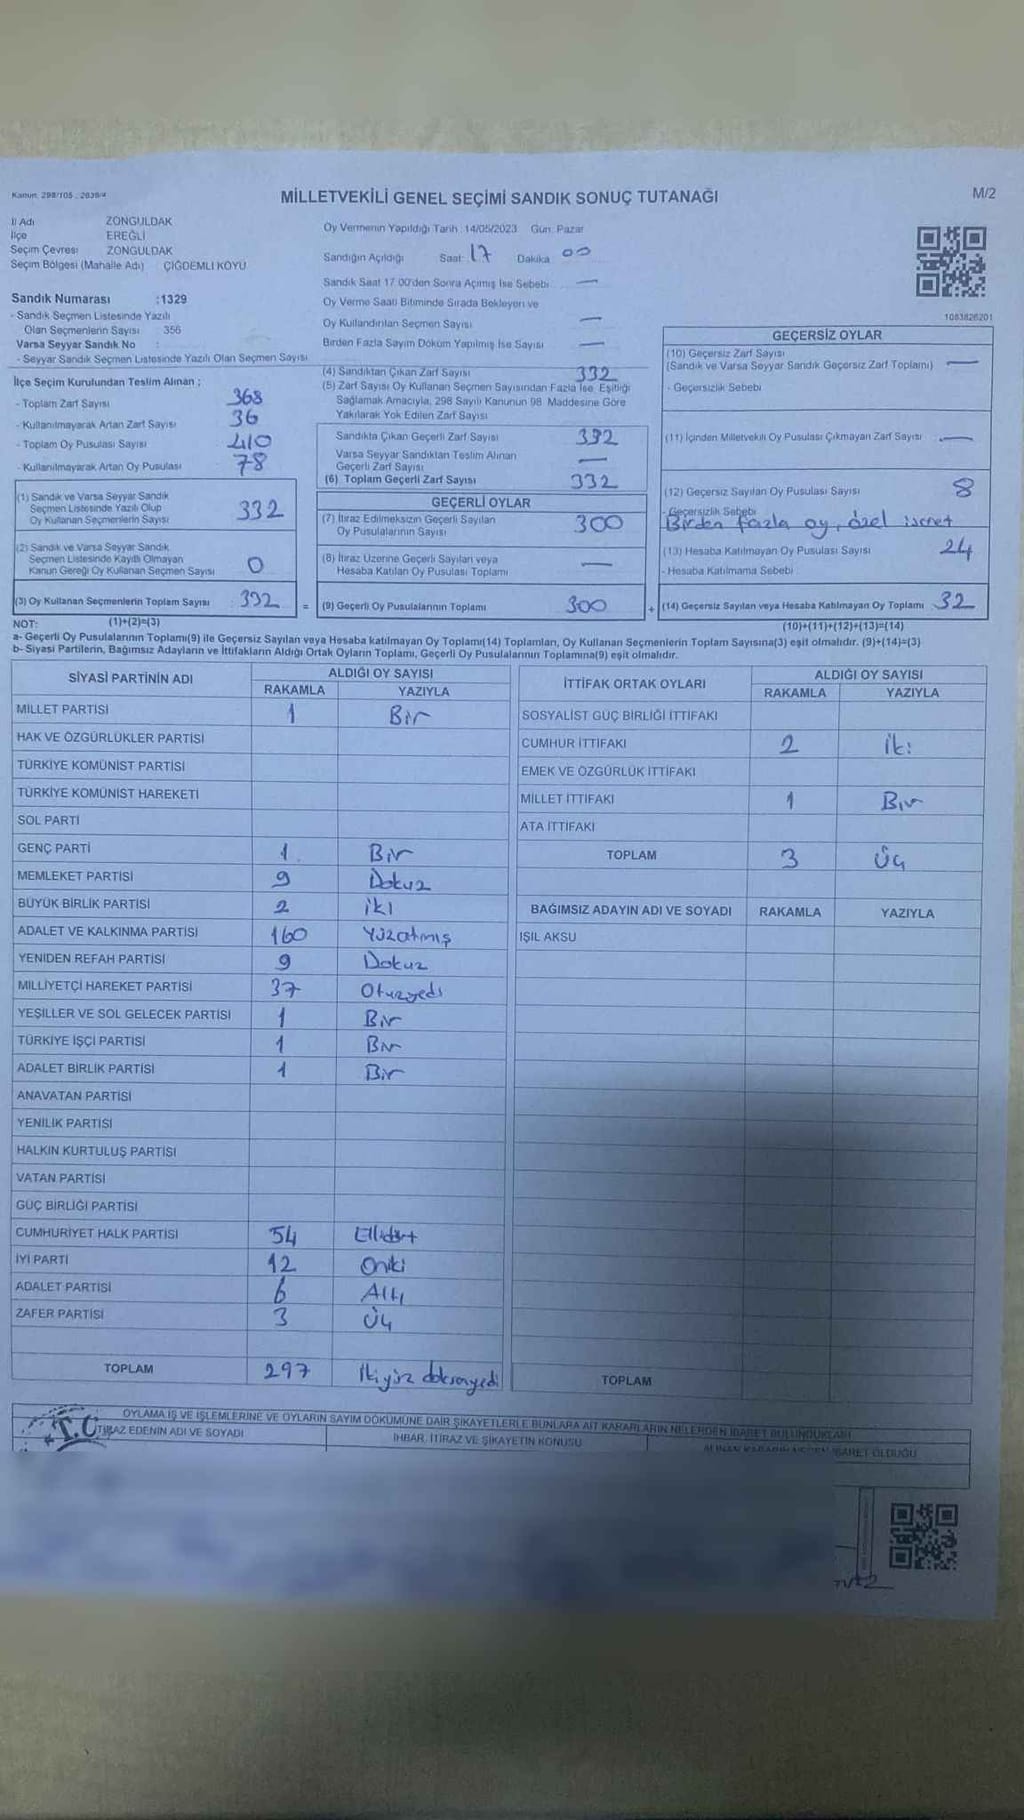 Kanun: 298/105 , 2839/4
MİLLETVEKİLİ GENEL SEÇİMİ SANDIK SONUÇ TUTANAĞI
M/2
İl Adı ZONGULDAK
İlçe EREĞLİ
Seçim Çevresi ZONGULDAK
Seçim Bölgesi (Mahalle Adı) ÇİĞDEMLİ KÖYÜ
Sandık Numarası :1329
- Sandık Seçmen Listesinde Yazılı
Olan Seçmenlerin Sayısı 356
Varsa Seyyar Sandık No :
- Seyyar Sandık Seçmen Listesinde Yazılı Olan Seçmen Sayısı
İlçe Seçim Kurulundan Teslim Alınan ;
- Toplam Zarf Sayısı 368
- Kullanılmayarak Artan Zarf Sayısı 36
- Toplam Oy Pusulası Sayısı 410
- Kullanılmayarak Artan Oy Pusulası 78
(1) Sandık ve Varsa Seyyar Sandık
Seçmen Listesinde Yazılı Olup
Oy Kullanan Seçmenlerin Sayısı 332
(2) Sandık ve Varsa Seyyar Sandık
Seçmen Listesinde Kayıtlı Olmayan
Kanun Gereği Oy Kullanan Seçmen Sayısı 0
(3) Oy Kullanan Seçmenlerin Toplam Sayısı 332 =
(1)+(2)=(3)
Oy Vermenin Yapıldığı Tarih : 14/05/2023 Gün: Pazar
Sandığın Açıldığı Saat: 17 Dakika 00
Sandık Saat 17.00'den Sonra Açımış İse Sebebi —
Oy Verme Saati Bitiminde Sırada Bekleyen ve
Oy Kullandırılan Seçmen Sayısı —
Birden Fazla Sayım Döküm Yapılmış İse Sayısı —
(4) Sandıktan Çıkan Zarf Sayısı 332
(5) Zarf Sayısı Oy Kullanan Seçmen Sayısından Fazla İse, Eşitliği
Sağlamak Amacıyla, 298 Sayılı Kanunun 98. Maddesine Göre
Yakılarak Yok Edilen Zarf Sayısı
Sandıkta Çıkan Geçerli Zarf Sayısı 332
Varsa Seyyar Sandıktan Teslim Alınan
Geçerli Zarf Sayısı —
(6) Toplam Geçerli Zarf Sayısı 332
GEÇERLİ OYLAR
(7) İtiraz Edilmeksizin Geçerli Sayılan
Oy Pusulalarının Sayısı 300
(8) İtiraz Üzerine Geçerli Sayılan veya
Hesaba Katılan Oy Pusulası Toplamı —
(9) Geçerli Oy Pusulalarının Toplamı 300 +
1083826201
GEÇERSİZ OYLAR
(10) Geçersiz Zarf Sayısı
(Sandık ve Varsa Seyyar Sandık Geçersiz Zarf Toplamı) —
- Geçersizlik Sebebi
(11) İçinden Milletvekili Oy Pusulası Çıkmayan Zarf Sayısı —
(12) Geçersiz Sayılan Oy Pusulası Sayısı 8
- Geçersizlik Sebebi
Birden fazla oy, özel işaret
(13) Hesaba Katılmayan Oy Pusulası Sayısı 24
- Hesaba Katılmama Sebebi
(14) Geçersiz Sayılan veya Hesaba Katılmayan Oy Toplamı 32
(10)+(11)+(12)+(13)=(14)
NOT:
a- Geçerli Oy Pusulalarının Toplamı(9) ile Geçersiz Sayılan veya Hesaba katılmayan Oy Toplamı(14) Toplamları, Oy Kullanan Seçmenlerin Toplam Sayısına(3) eşit olmalıdır. (9)+(14)=(3)
b- Siyasi Partilerin, Bağımsız Adayların ve İttifakların Aldığı Ortak Oyların Toplamı, Geçerli Oy Pusulalarının Toplamına(9) eşit olmalıdır.
SİYASİ PARTİNİN ADI ALDIĞI OY SAYISI
RAKAMLA YAZIYLA
MİLLET PARTİSİ 1 Bir
HAK VE ÖZGÜRLÜKLER PARTİSİ
TÜRKİYE KOMÜNİST PARTİSİ
TÜRKİYE KOMÜNİST HAREKETİ
SOL PARTİ
GENÇ PARTİ 1 Bir
MEMLEKET PARTİSİ 9 Dokuz
BÜYÜK BİRLİK PARTİSİ 2 iki
ADALET VE KALKINMA PARTİSİ 160 Yüzatmış
YENİDEN REFAH PARTİSİ 9 Dokuz
MİLLİYETÇİ HAREKET PARTİSİ 37 Otuzyedi
YEŞİLLER VE SOL GELECEK PARTİSİ 1 Bir
TÜRKİYE İŞÇİ PARTİSİ 1 Bir
ADALET BİRLİK PARTİSİ 1 Bir
ANAVATAN PARTİSİ
YENİLİK PARTİSİ
HALKIN KURTULUŞ PARTİSİ
VATAN PARTİSİ
GÜÇ BİRLİĞİ PARTİSİ
CUMHURİYET HALK PARTİSİ 54 Ellidört
İYİ PARTİ 12 Oniki
ADALET PARTİSİ 6 Altı
ZAFER PARTİSİ 3 Üç
TOPLAM 297 İkiyüz doksanyedi
İTTİFAK ORTAK OYLARI ALDIĞI OY SAYISI
RAKAMLA YAZIYLA
SOSYALİST GÜÇ BİRLİĞİ İTTİFAKI
CUMHUR İTTİFAKI 2 İki
EMEK VE ÖZGÜRLÜK İTTİFAKI
MİLLET İTTİFAKI 1 Bir
ATA İTTİFAKI
TOPLAM 3 Üç
BAĞIMSIZ ADAYIN ADI VE SOYADI RAKAMLA YAZIYLA
IŞIL AKSU
TOPLAM
OYLAMA İŞ VE İŞLEMLERİNE VE OYLARIN SAYIM DÖKÜMÜNE DAİR ŞİKAYETLERLE BUNLARA AİT KARARLARIN NELERDEN İBARET BULUNDUKLARI
T.C.
İTİRAZ EDENİN ADI VE SOYADI
İHBAR, İTİRAZ VE ŞİKAYETİN KONUSU
ALINAN KARARIN NEDEN İBARET OLDUĞU